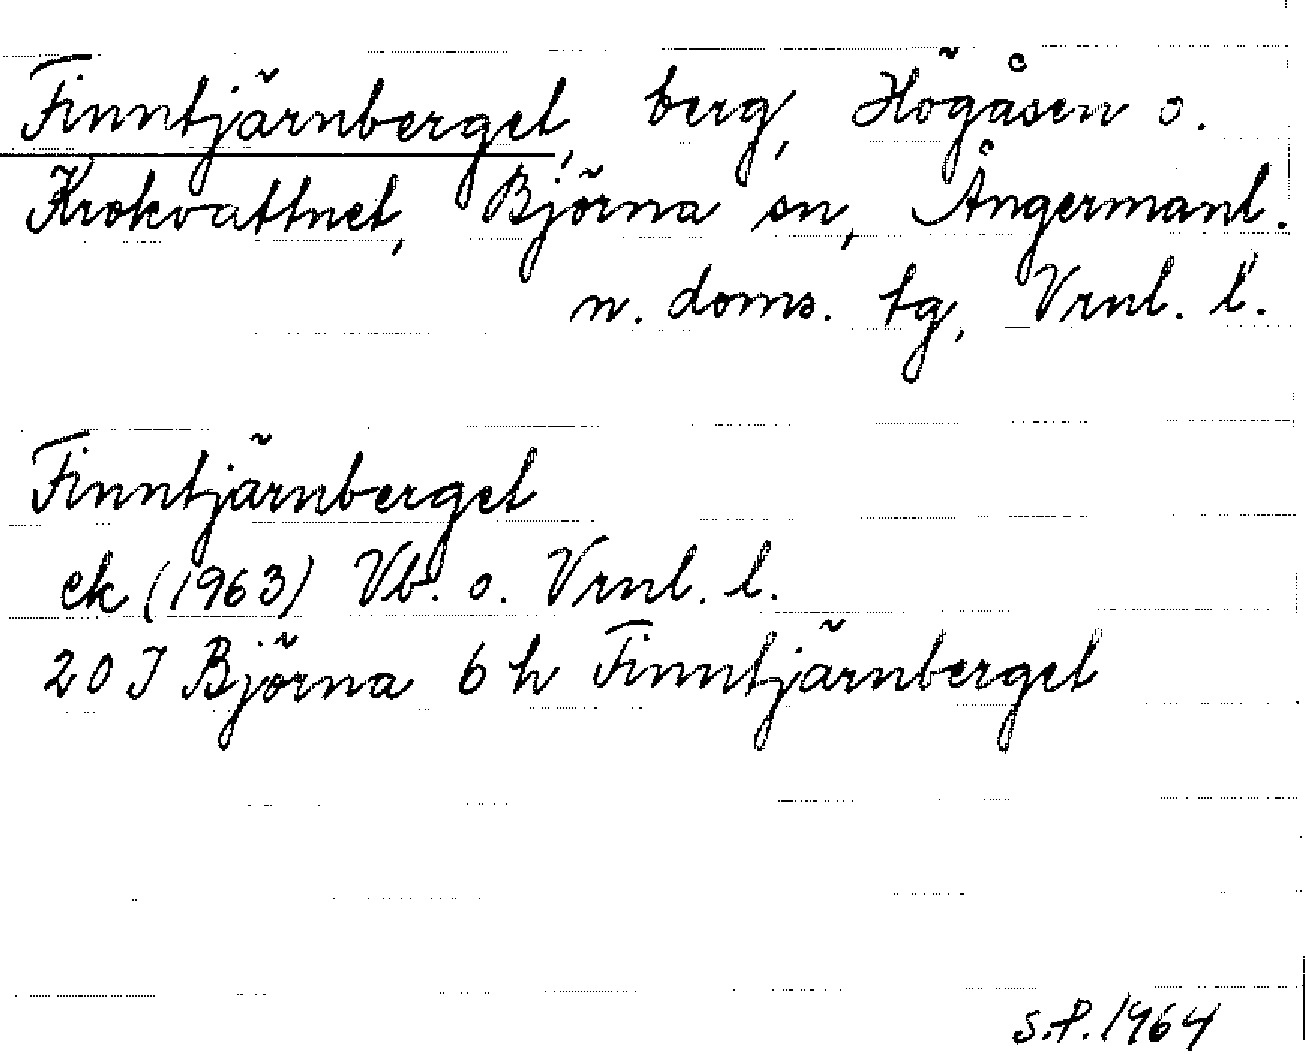 Finntjärnberget, berg, Högåsen o.
Krokvattnet, Björna sn, Ångermanl.
n. doms. tg, Vrnl. l.
Finntjärnberget
ek (1963) Vb. o. Vrnl. l.
20 J Björna 6 h Finntjärnberget
S.P. 1964